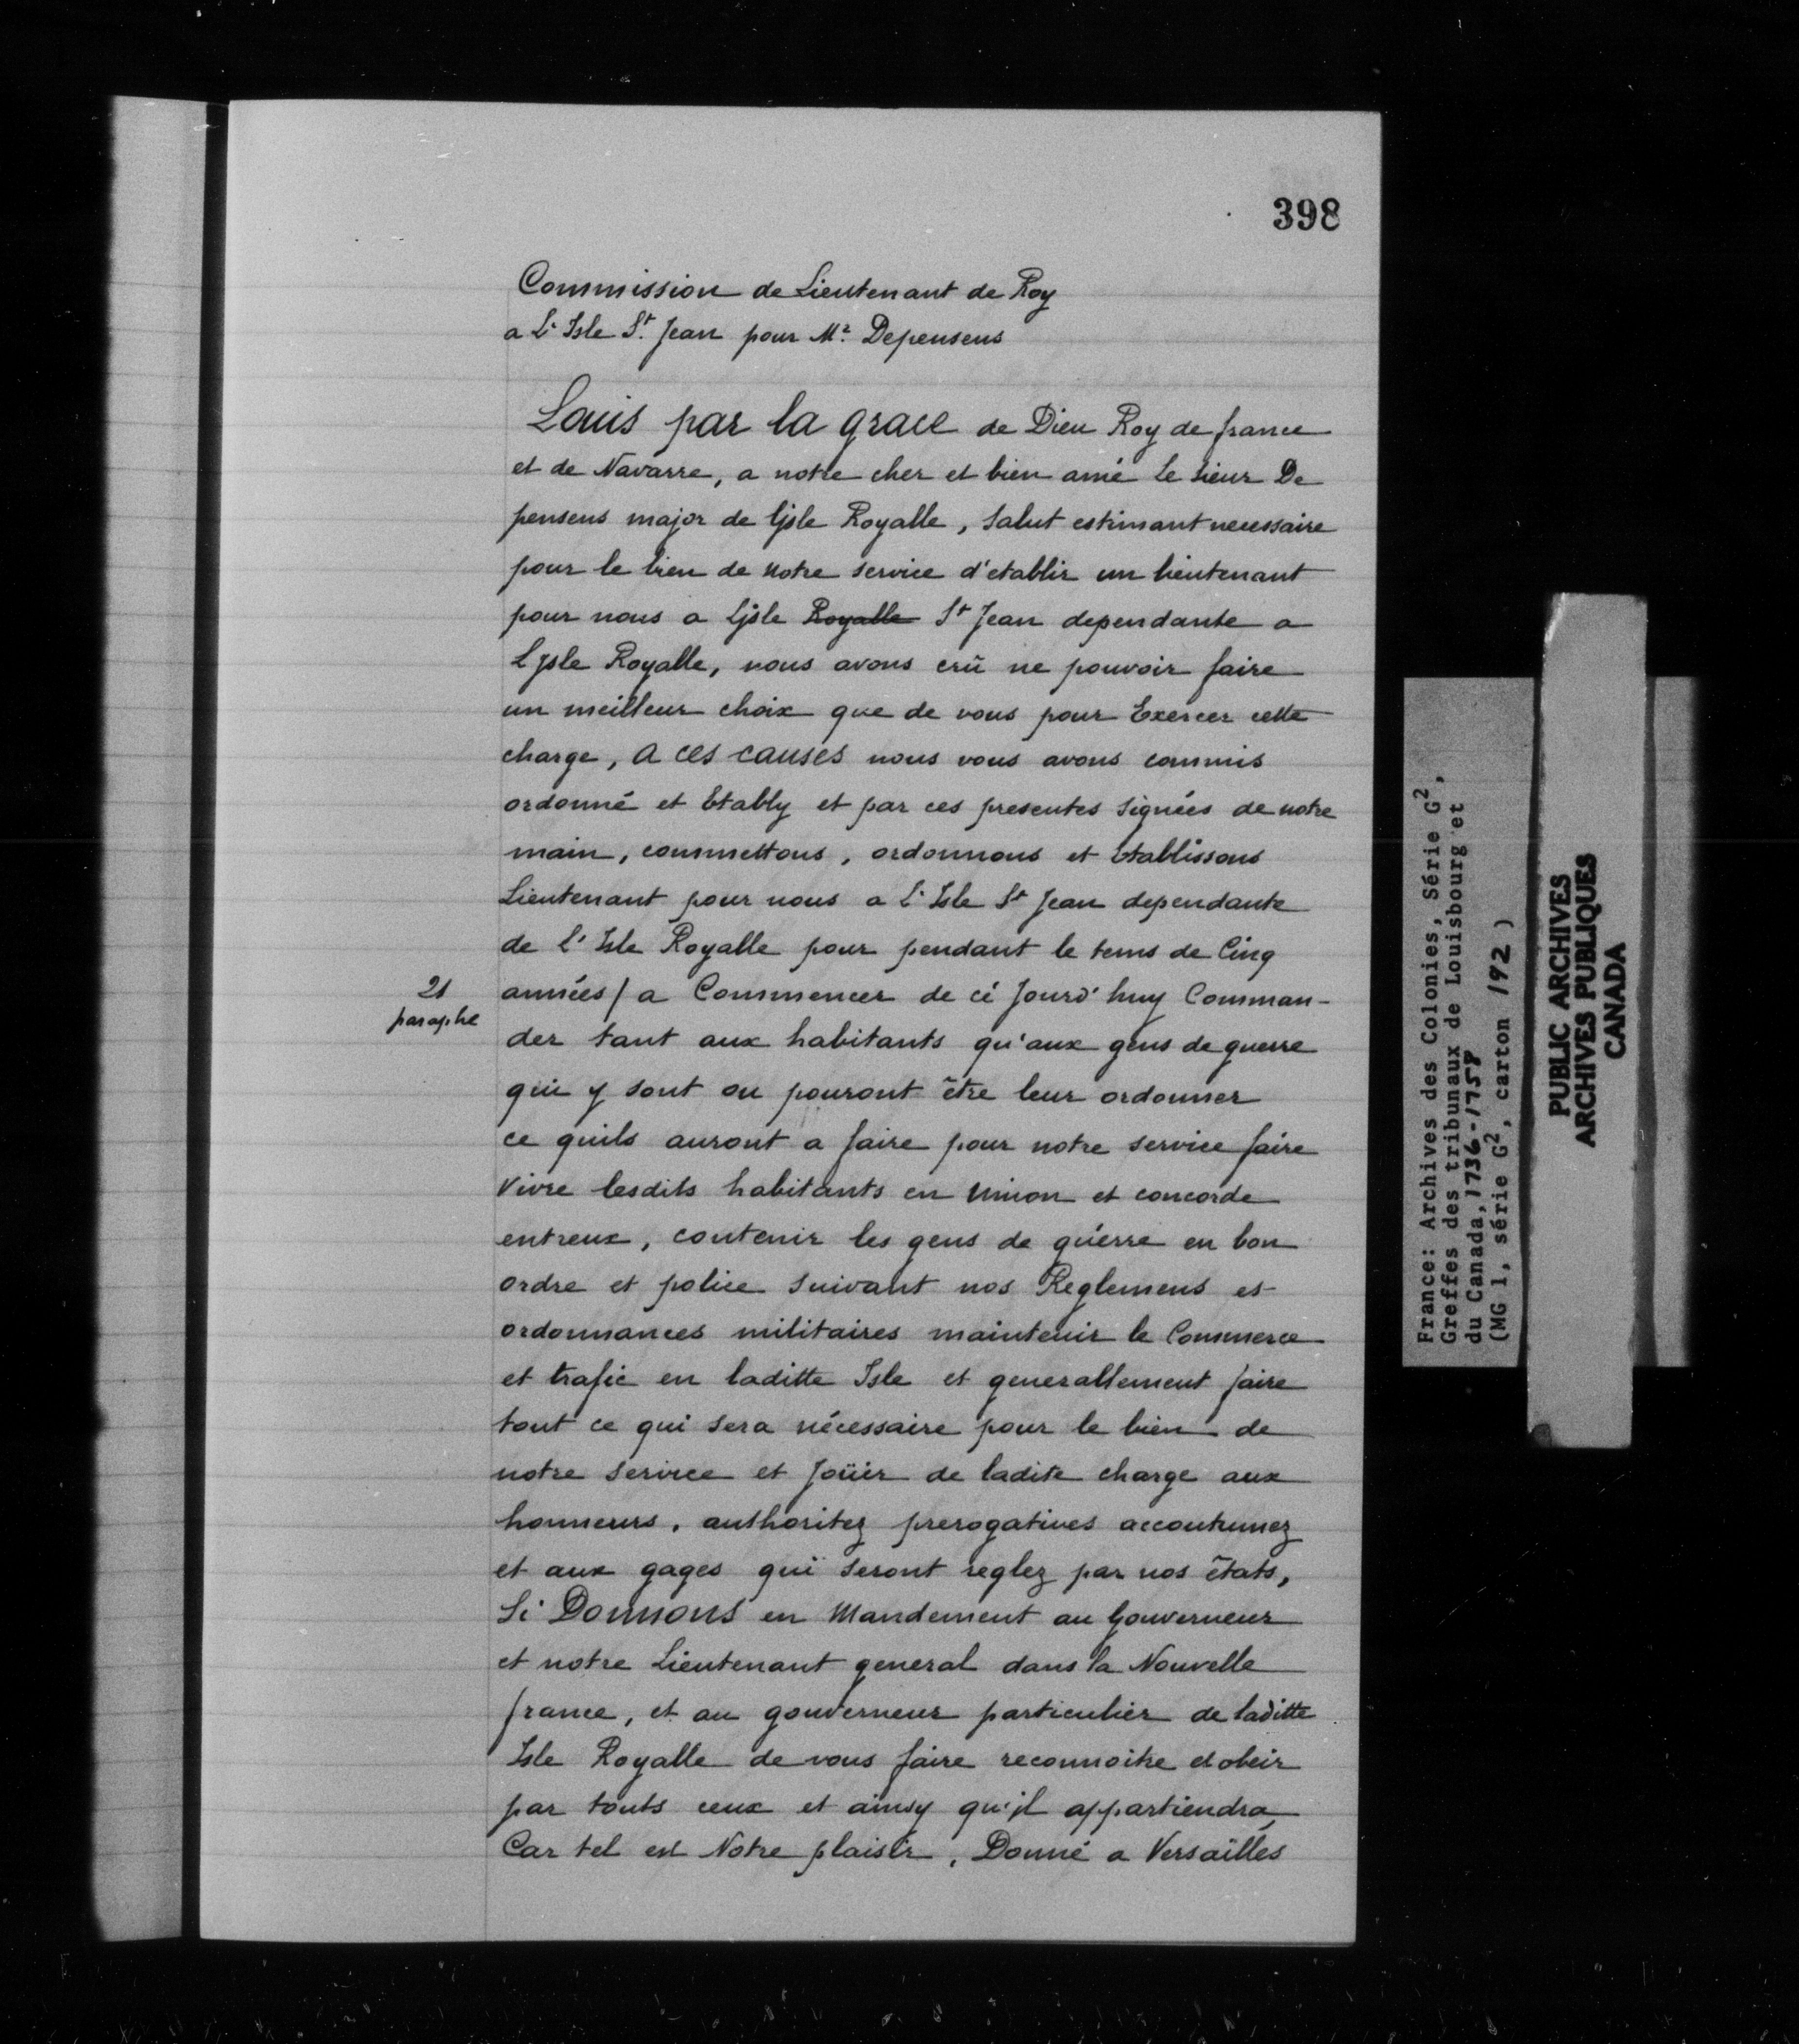 398
Commission de Lieutenant de Roy
a L'Isle St. Jean pour Mr. Depensens
Louis par la grace de Dieu Roy de france
et de Navarre, a notre cher et bien amé Le Sieur De
pensens major de Ljsle Royalle, Salut estimant necessaire
pour le bien de notre service d'etablir un lieutenant
pour nous a Ljsle Royalle St Jean dependante a
Ljsle Royalle, nous avons crû ne pouvoir faire
un meilleur choix que de vous pour Exercer cette
charge, a ces causes nous vous avons commis
ordonné et Etably et par ces presentes Signées de notre
main, commettons, ordonnons et Etablissons
Lieutenant pour nous a L'Isle St Jean dependante
de l'Isle Royalle pour pendant le tems de Cinq
21
paraphe
années / a Commencer de cé Jourd'huy Comman-
der tant aux habitants qu'aux gens de guerre
qui y sont ou pouront être leur ordonner
ce quils auront a faire pour notre service faire
Vivre lesdits habitants en Union et concorde
entreux, contenir les gens de guérre en bon
ordre et police suivant nos Reglemens et
ordonnances militaires maintenir le Commerce
et trafic en laditte Isle et generallement faire
tout ce qui sera nécessaire pour le bien de
notre service et Joüir de ladite charge aux
honneurs, authoritez prerogatives accoutumez
et aux gages qui seront reglez par nos états,
Si Donnons en Mandement au Gouverneur
et notre Lieutenant general dans la Nouvelle
france, et au gouverneur particulier de laditte
Isle Royalle de vous faire reconnoitre et obeir
par touts ceux et ainsy qu'jl appartiendra
Car tel est Notre plaisir, Donné a Versailles
France: Archives des Colonies, Série G2,
Greffes des tribunaux de Louisbourg et
du Canada, 1736-1758
(MG 1, série G2, carton 192 )
PUBLIC ARCHIVES
ARCHIVES PUBLIQUES
CANADA